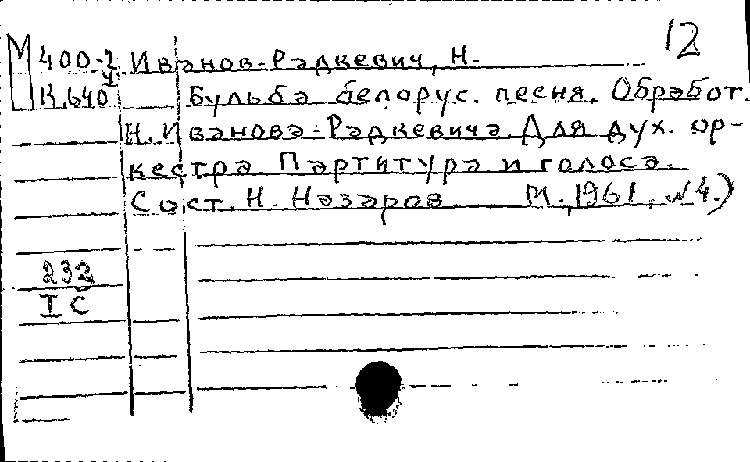 12
М 400-2 Иванов-Радкевич, Н.
К.640 Бульба белорус. песня. Обработ.
Н. Иванова-Радкевича. Для дух. ор-
кестра. Партитура и голоса.
Сост. Н. Назаров М., 1961, №4.)
232
I C